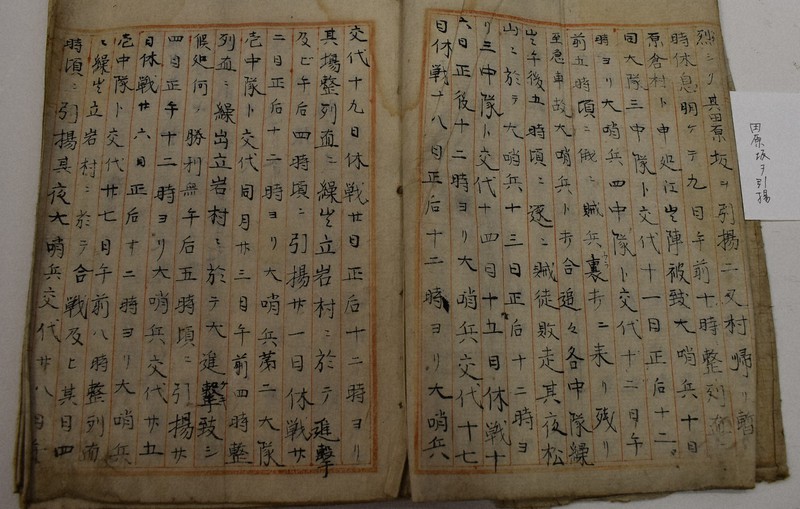 烈シリ其田原坂ヲ引揚二又村帰リ暫
時休息明ケテ九日午前十時整列直
原倉村ト申処江出陣被致大哨兵十日
同大隊三中隊ト交代十一日正后十二
時ヨリ大哨兵四中隊ト交代十二日午
前五時頃ニ俄ニ賊兵裏打ニ来リ残リ
至急車故大哨兵ト打合追々各中隊繰
出午後五時頃ニ逐ニ賊徒敗走其夜松
山ニ於テ大哨兵十三日正后十二時ヨ
リ三中隊ト交代十四日十五日休戦十
六日正後十二時ヨリ大哨兵交代十七
日休戦十八日正后十二時ヨリ大哨兵
交代十九日休戦廿日正后十二時ヨリ
其場整列直ニ繰出立岩村ニ於テ進撃
及ヒ午后四時頃ニ引揚廿一日休戦廿
二日正后十二時ヨリ大哨兵第二大隊
壱中隊ト交代同月廿三日午前四時整
列直ニ繰出立岩村ニ於テ大進撃致シ
候如何ノ勝利無午后五時頃ニ引揚廿
四日正午十二時ヨリ大哨兵交代廿五
日休戦廿六日正后十二時ヨリ大哨兵
壱中隊ト交代廿七日午前八時整列直
ニ繰出立岩村ニ於テ合戦及ヒ其日四
時頃ニ引揚其夜大哨兵交代廿八日
田原坂ヲ引揚